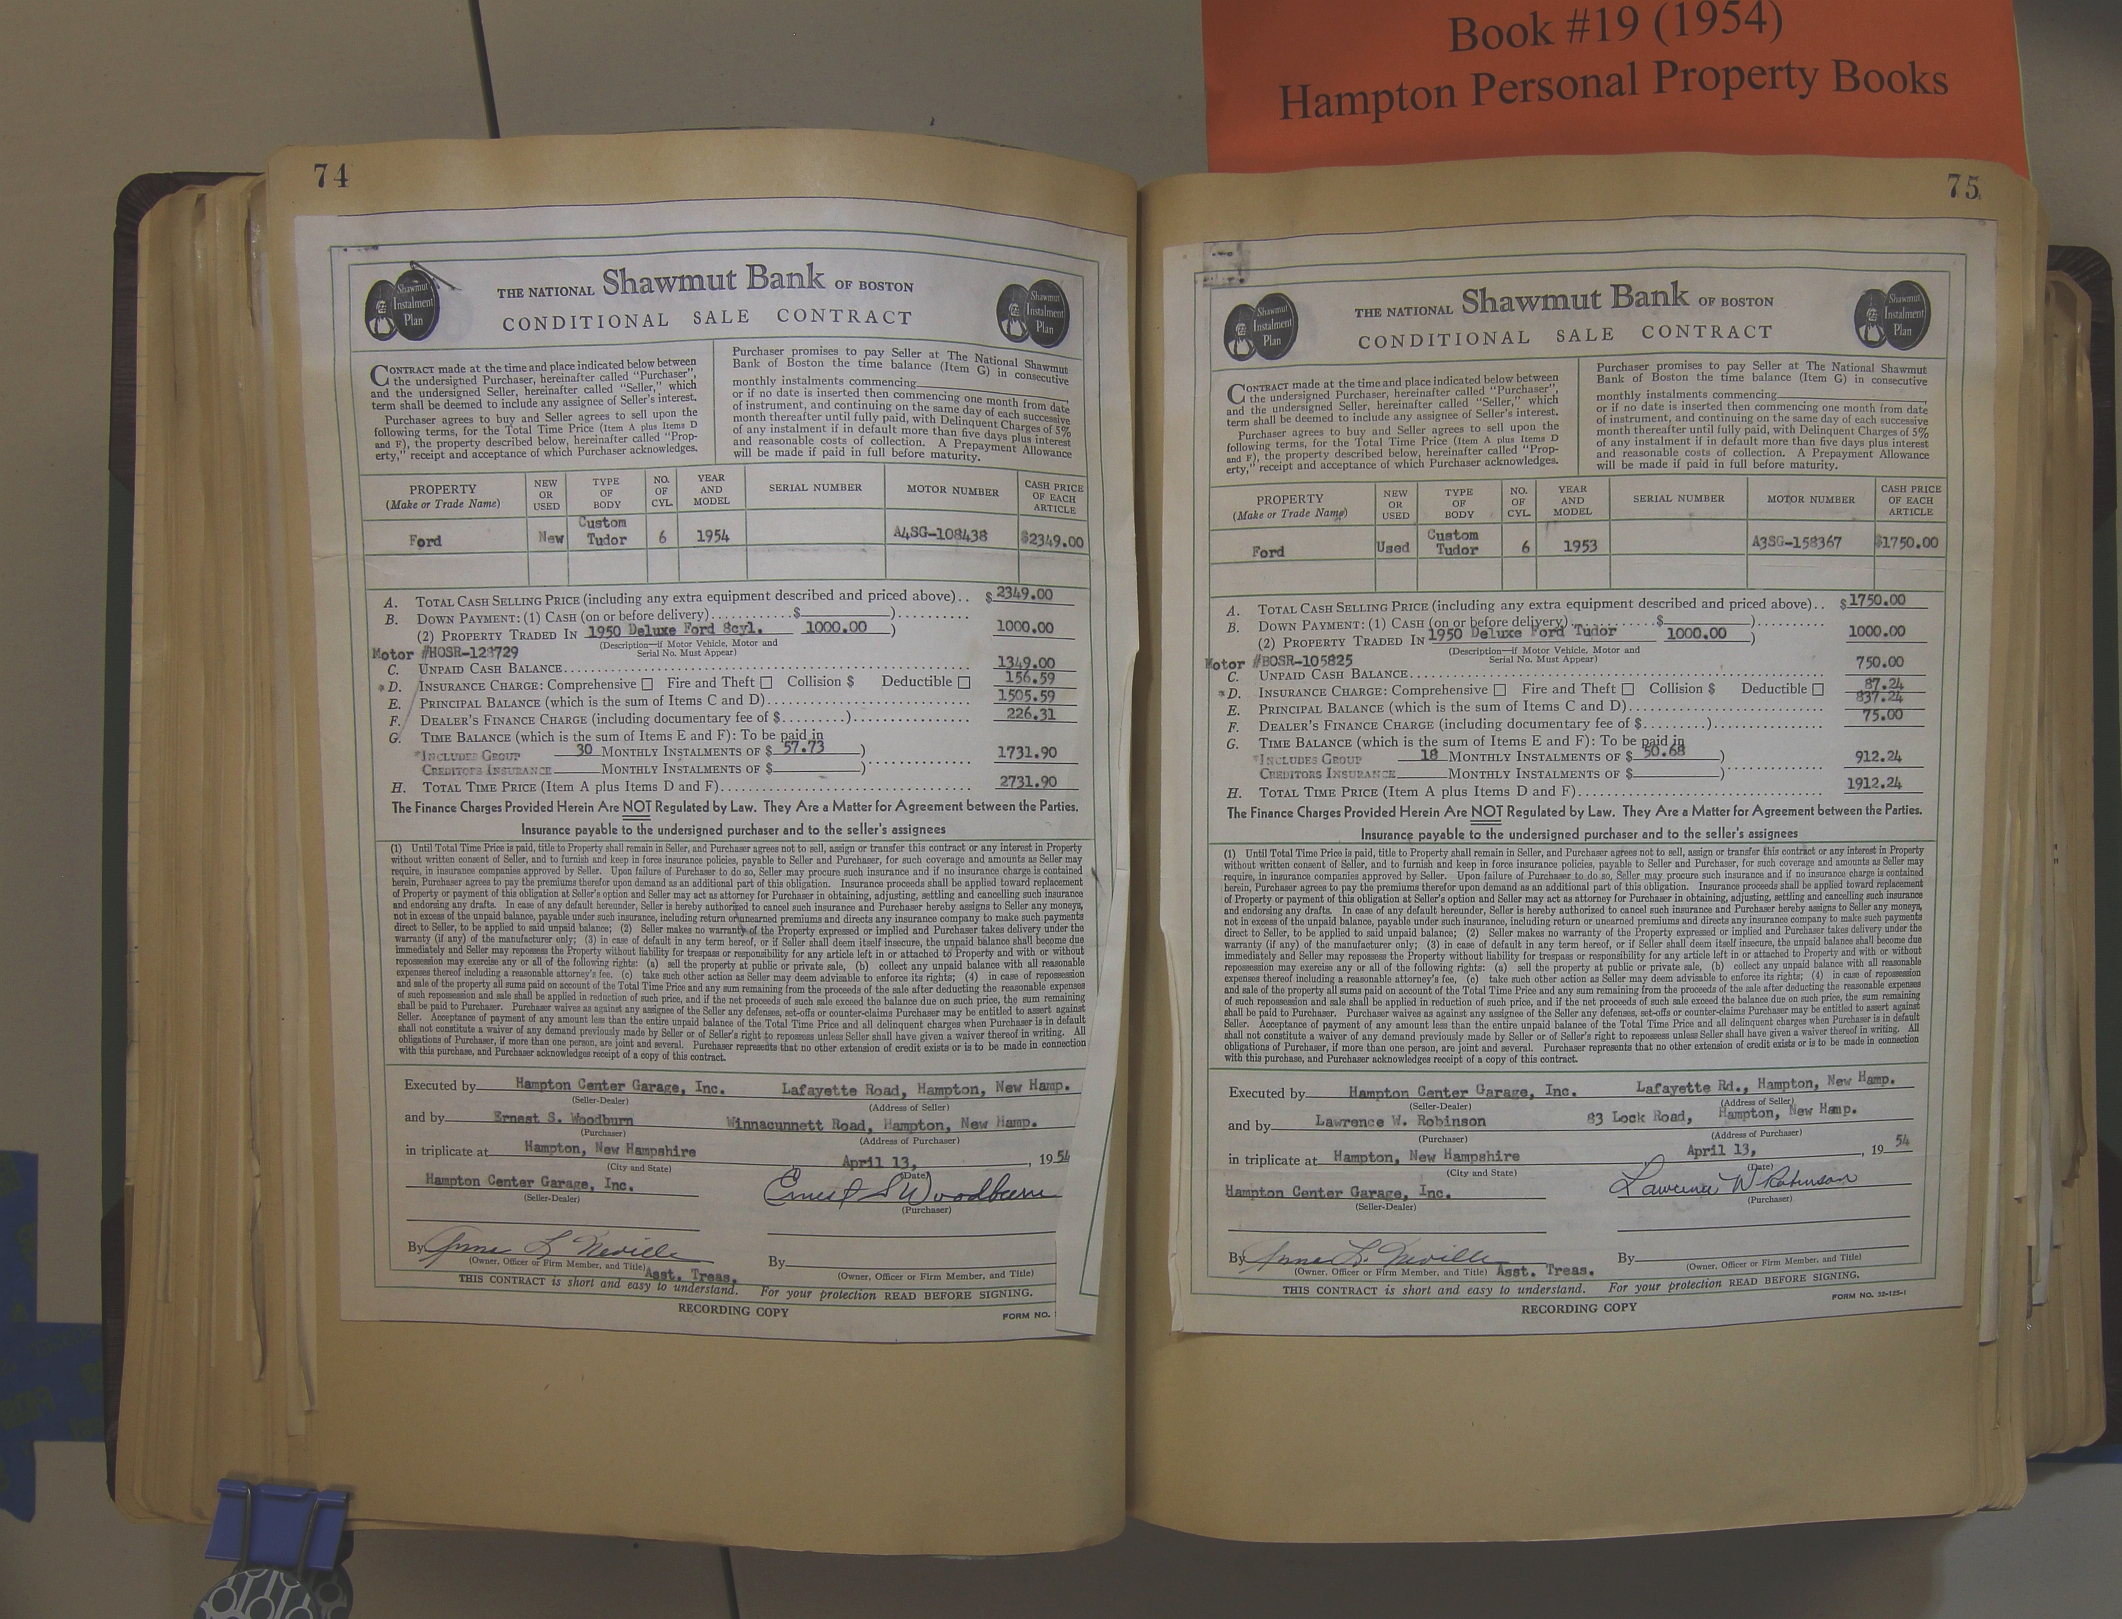 Book #19 (1954)
Hampton Personal Property Books
74
Shawmut
Instalment
Plan
THE NATIONAL Shawmut Bank OF BOSTON
CONDITIONAL SALE CONTRACT
Shawmut
Instalment
Plan
CONTRACT made at the time and place indicated below between
the undersigned Purchaser, hereinafter called "Purchaser",
and the undersigned Seller, hereinafter called "Seller," which
term shall be deemed to include any assignee of Seller's interest.
Purchaser agrees to buy and Seller agrees to sell upon the
following terms, for the Total Time Price (Item A plus Items D
and F), the property described below, hereinafter called "Prop-
erty," receipt and acceptance of which Purchaser acknowledges.
Purchaser promises to pay Seller at The National Shawmut
Bank of Boston the time balance (Item G) in consecutive
monthly instalments commencing
or if no date is inserted then commencing one month from date
of instrument, and continuing on the same day of each successive
month thereafter until fully paid, with Delinquent Charges of 5%
of any instalment if in default more than five days plus interest
and reasonable costs of collection. A Prepayment Allowance
will be made if paid in full before maturity.
PROPERTY (Make or Trade Name) NEW OR USED TYPE OF BODY NO. OF CYL. YEAR AND MODEL SERIAL NUMBER MOTOR NUMBER CASH PRICE OF EACH ARTICLE
Ford New Custom Tudor 6 1954 A4SG-108438 $2349.00
A. TOTAL CASH SELLING PRICE (including any extra equipment described and priced above).. $2349.00
B. DOWN PAYMENT: (1) CASH (on or before delivery)............$ )..........
(2) PROPERTY TRADED IN 1950 Deluxe Ford 8cyl. 1000.00 ) 1000.00
(Description—if Motor Vehicle, Motor and
Serial No. Must Appear)
Motor #HOSR-128729
C. UNPAID CASH BALANCE 1349.00
*D. INSURANCE CHARGE: Comprehensive □ Fire and Theft □ Collision $ Deductible □ 156.59
E. PRINCIPAL BALANCE (which is the sum of Items C and D) 1505.59
F. DEALER'S FINANCE CHARGE (including documentary fee of $.........) 226.31
G. TIME BALANCE (which is the sum of Items E and F): To be paid in
*INCLUDES GROUP 30 MONTHLY INSTALMENTS OF $ 57.73 ) 1731.90
CREDITORS INSURANCE MONTHLY INSTALMENTS OF $ )
H. TOTAL TIME PRICE (Item A plus Items D and F) 2731.90
The Finance Charges Provided Herein Are NOT Regulated by Law. They Are a Matter for Agreement between the Parties.
Insurance payable to the undersigned purchaser and to the seller's assignees
(1) Until Total Time Price is paid, title to Property shall remain in Seller, and Purchaser agrees not to sell, assign or transfer this contract or any interest in Property
without written consent of Seller, and to furnish and keep in force insurance policies, payable to Seller and Purchaser, for such coverage and amounts as Seller may
require, in insurance companies approved by Seller. Upon failure of Purchaser to do so, Seller may procure such insurance and if no insurance charge is contained
herein, Purchaser agrees to pay the premiums therefor upon demand as an additional part of this obligation. Insurance proceeds shall be applied toward replacement
of Property or payment of this obligation at Seller's option and Seller may act as attorney for Purchaser in obtaining, adjusting, settling and cancelling such insurance
and endorsing any drafts. In case of any default hereunder, Seller is hereby authorized to cancel such insurance and Purchaser hereby assigns to Seller any moneys,
not in excess of the unpaid balance, payable under such insurance, including return or unearned premiums and directs any insurance company to make such payments
direct to Seller, to be applied to said unpaid balance; (2) Seller makes no warranty of the Property expressed or implied and Purchaser takes delivery under the
warranty (if any) of the manufacturer only; (3) in case of default in any term hereof, or if Seller shall deem itself insecure, the unpaid balance shall become due
immediately and Seller may repossess the Property without liability for trespass or responsibility for any article left in or attached to Property and with or without
repossession may exercise any or all of the following rights: (a) sell the property at public or private sale, (b) collect any unpaid balance with all reasonable
expenses thereof including a reasonable attorney's fee, (c) take such other action as Seller may deem advisable to enforce its rights; (4) in case of repossession
and sale of the property all sums paid on account of the Total Time Price and any sum remaining from the proceeds of the sale after deducting the reasonable expenses
of such repossession and sale shall be applied in reduction of such price, and if the net proceeds of such sale exceed the balance due on such price, the sum remaining
shall be paid to Purchaser. Purchaser waives as against any assignee of the Seller any defenses, set-offs or counter-claims Purchaser may be entitled to assert against
Seller. Acceptance of payment of any amount less than the entire unpaid balance of the Total Time Price and all delinquent charges when Purchaser is in default
shall not constitute a waiver of any demand previously made by Seller or of Seller's right to repossess unless Seller shall have given a waiver thereof in writing. All
obligations of Purchaser, if more than one person, are joint and several. Purchaser represents that no other extension of credit exists or is to be made in connection
with this purchase, and Purchaser acknowledges receipt of a copy of this contract.
Executed by Hampton Center Garage, Inc. Lafayette Road, Hampton, New Hamp.
(Seller-Dealer) (Address of Seller)
and by Ernest S. Woodburn Winnacunnett Road, Hampton, New Hamp.
(Purchaser) (Address of Purchaser)
in triplicate at Hampton, New Hampshire April 13, , 1954
(City and State) (Date)
Hampton Center Garage, Inc. Ernest S Woodburn
(Seller-Dealer) (Purchaser)
By Anna L. Neville By
(Owner, Officer or Firm Member, and Title) Asst. Treas. (Owner, Officer or Firm Member, and Title)
THIS CONTRACT is short and easy to understand. For your protection READ BEFORE SIGNING.
RECORDING COPY FORM NO.
75
Shawmut
Instalment
Plan
THE NATIONAL Shawmut Bank OF BOSTON
CONDITIONAL SALE CONTRACT
Shawmut
Instalment
Plan
CONTRACT made at the time and place indicated below between
the undersigned Purchaser, hereinafter called "Purchaser",
and the undersigned Seller, hereinafter called "Seller," which
term shall be deemed to include any assignee of Seller's interest.
Purchaser agrees to buy and Seller agrees to sell upon the
following terms, for the Total Time Price (Item A plus Items D
and F), the property described below, hereinafter called "Prop-
erty," receipt and acceptance of which Purchaser acknowledges.
Purchaser promises to pay Seller at The National Shawmut
Bank of Boston the time balance (Item G) in consecutive
monthly instalments commencing
or if no date is inserted then commencing one month from date
of instrument, and continuing on the same day of each successive
month thereafter until fully paid, with Delinquent Charges of 5%
of any instalment if in default more than five days plus interest
and reasonable costs of collection. A Prepayment Allowance
will be made if paid in full before maturity.
PROPERTY (Make or Trade Name) NEW OR USED TYPE OF BODY NO. OF CYL. YEAR AND MODEL SERIAL NUMBER MOTOR NUMBER CASH PRICE OF EACH ARTICLE
Ford Used Custom Tudor 6 1953 A3SG-158367 $1750.00
A. TOTAL CASH SELLING PRICE (including any extra equipment described and priced above).. $1750.00
B. DOWN PAYMENT: (1) CASH (on or before delivery)............$ )..........
(2) PROPERTY TRADED IN 1950 Deluxe Ford Tudor 1000.00 ) 1000.00
(Description—if Motor Vehicle, Motor and
Serial No. Must Appear)
Motor #BOSR-105825
C. UNPAID CASH BALANCE 750.00
*D. INSURANCE CHARGE: Comprehensive □ Fire and Theft □ Collision $ Deductible □ 87.24
E. PRINCIPAL BALANCE (which is the sum of Items C and D) 837.24
F. DEALER'S FINANCE CHARGE (including documentary fee of $.........) 75.00
G. TIME BALANCE (which is the sum of Items E and F): To be paid in
*INCLUDES GROUP 18 MONTHLY INSTALMENTS OF $ 50.68 ) 912.24
CREDITORS INSURANCE MONTHLY INSTALMENTS OF $ )
H. TOTAL TIME PRICE (Item A plus Items D and F) 1912.24
The Finance Charges Provided Herein Are NOT Regulated by Law. They Are a Matter for Agreement between the Parties.
Insurance payable to the undersigned purchaser and to the seller's assignees
(1) Until Total Time Price is paid, title to Property shall remain in Seller, and Purchaser agrees not to sell, assign or transfer this contract or any interest in Property
without written consent of Seller, and to furnish and keep in force insurance policies, payable to Seller and Purchaser, for such coverage and amounts as Seller may
require, in insurance companies approved by Seller. Upon failure of Purchaser to do so, Seller may procure such insurance and if no insurance charge is contained
herein, Purchaser agrees to pay the premiums therefor upon demand as an additional part of this obligation. Insurance proceeds shall be applied toward replacement
of Property or payment of this obligation at Seller's option and Seller may act as attorney for Purchaser in obtaining, adjusting, settling and cancelling such insurance
and endorsing any drafts. In case of any default hereunder, Seller is hereby authorized to cancel such insurance and Purchaser hereby assigns to Seller any moneys,
not in excess of the unpaid balance, payable under such insurance, including return or unearned premiums and directs any insurance company to make such payments
direct to Seller, to be applied to said unpaid balance; (2) Seller makes no warranty of the Property expressed or implied and Purchaser takes delivery under the
warranty (if any) of the manufacturer only; (3) in case of default in any term hereof, or if Seller shall deem itself insecure, the unpaid balance shall become due
immediately and Seller may repossess the Property without liability for trespass or responsibility for any article left in or attached to Property and with or without
repossession may exercise any or all of the following rights: (a) sell the property at public or private sale, (b) collect any unpaid balance with all reasonable
expenses thereof including a reasonable attorney's fee, (c) take such other action as Seller may deem advisable to enforce its rights; (4) in case of repossession
and sale of the property all sums paid on account of the Total Time Price and any sum remaining from the proceeds of the sale after deducting the reasonable expenses
of such repossession and sale shall be applied in reduction of such price, and if the net proceeds of such sale exceed the balance due on such price, the sum remaining
shall be paid to Purchaser. Purchaser waives as against any assignee of the Seller any defenses, set-offs or counter-claims Purchaser may be entitled to assert against
Seller. Acceptance of payment of any amount less than the entire unpaid balance of the Total Time Price and all delinquent charges when Purchaser is in default
shall not constitute a waiver of any demand previously made by Seller or of Seller's right to repossess unless Seller shall have given a waiver thereof in writing. All
obligations of Purchaser, if more than one person, are joint and several. Purchaser represents that no other extension of credit exists or is to be made in connection
with this purchase, and Purchaser acknowledges receipt of a copy of this contract.
Executed by Hampton Center Garage, Inc. Lafayette Rd., Hampton, New Hamp.
(Seller-Dealer) (Address of Seller)
and by Lawrence W. Robinson 83 Lock Road, Hampton, New Hamp.
(Purchaser) (Address of Purchaser)
in triplicate at Hampton, New Hampshire April 13, , 19 54
(City and State) (Date)
Hampton Center Garage, Inc. Lawrence W Robinson
(Seller-Dealer) (Purchaser)
By Anna L. Neville By
(Owner, Officer or Firm Member, and Title) Asst. Treas. (Owner, Officer or Firm Member, and Title)
THIS CONTRACT is short and easy to understand. For your protection READ BEFORE SIGNING.
RECORDING COPY FORM NO. 32-125-1